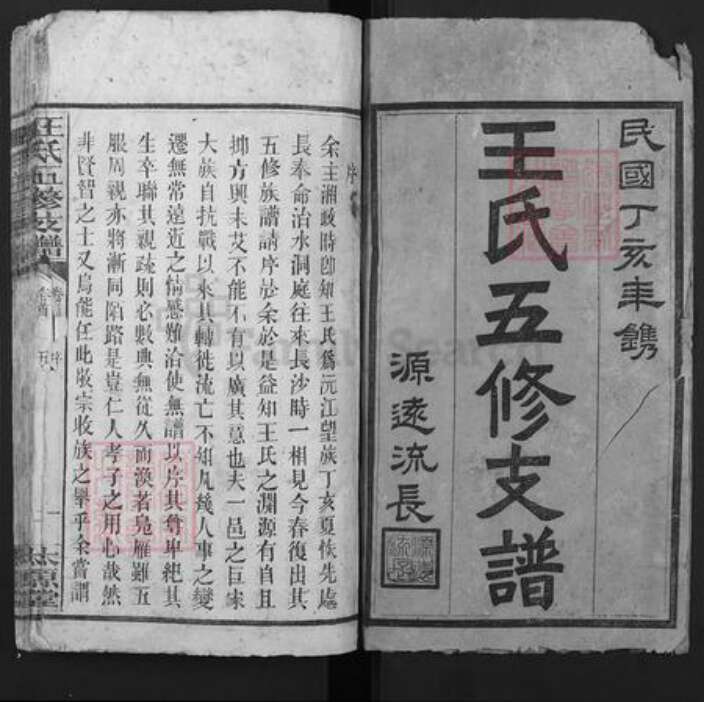 民國丁亥年鐫
王氏五修支譜
源遠流長
序
余主湘政時即知王氏為沅江望族丁亥夏恢先處
長奉命治水洞庭往來長沙時一相見今春復出其
五修族譜請序於余於是益知王氏之淵源有自且
方興未艾不能不有以廣其意也夫一邑之巨宗
大族自抗戰以來其轉徙流亡不知凡幾人事之變
遷無常遠近之情感難洽使無譜以序其尊卑紀其
生卒聯其親疏則必數典無從久而渙者鳧雁雖五
服周視亦將漸同陌路是豈仁人孝子之用心哉然
非賢智之士又烏能任此敬宗收族之舉乎余嘗謂
王氏五修支譜
卷首
序
五